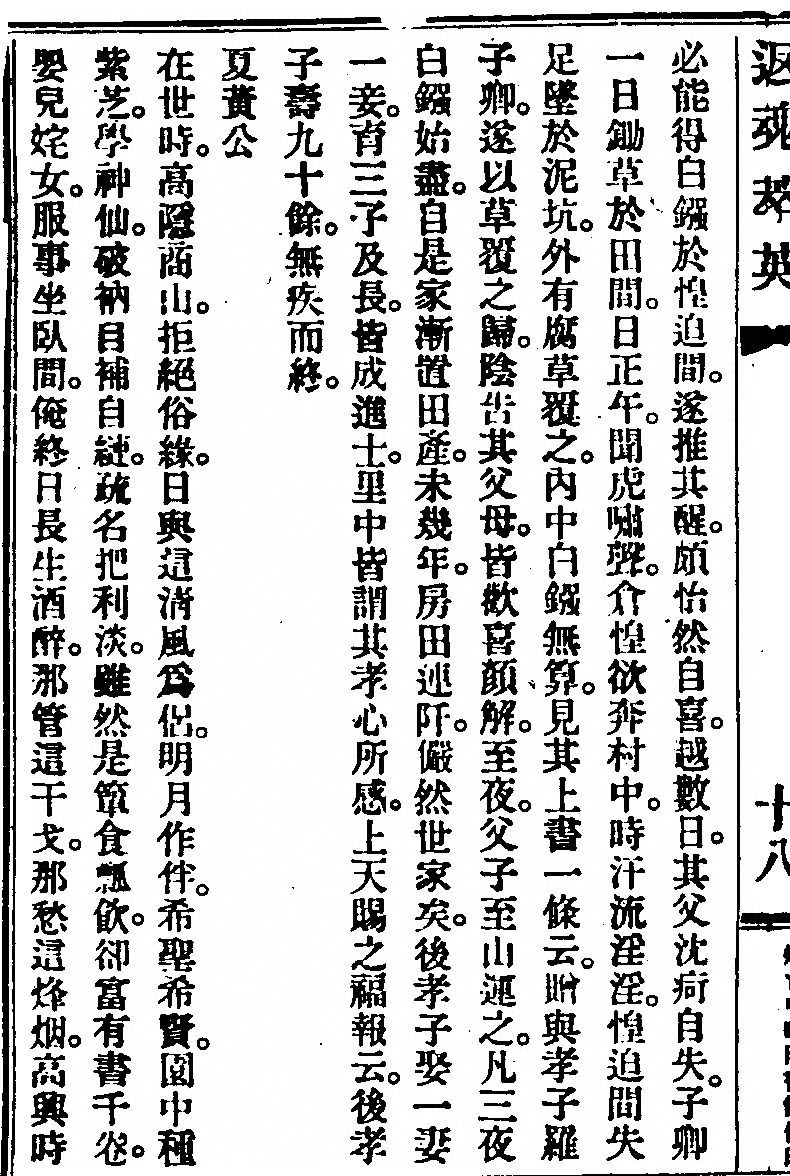 返魂萃英
十八
必能得白鏹於惶迫間。遂推其醒。頗怡然自喜。越數日。其父沈疴自失。子卿
一日鋤草於田間。日正午。聞虎嘯聲。倉惶欲奔村中。時汗流淫淫。惶迫間失
足墜於泥坑。外有腐草覆之。內中白鏹無算。見其上書一條云。贈與孝子羅
子卿。遂以草覆之歸。陰告其父母。皆歡喜顏解。至夜。父子至山運之。凡三夜
白鏹始盡。自是家漸置田產。未幾年。房田連阡。儼然世家矣。後孝子娶一妻
一妾。育三子及長。皆成進士。里中皆謂其孝心所感。上天賜之福報云。後孝
子壽九十餘。無疾而終。
夏黃公
在世時。高隱商山。拒絕俗緣。日與這清風爲侶。明月作伴。希聖希賢。園中種
紫芝。學神仙。破衲自補自縺。疏名把利淡。雖然是簞食瓢飲。卻富有書千卷。
嬰兒姹女。服事坐臥間。俺終日長生酒醉。那管這干戈。那愁這烽烟。高興時